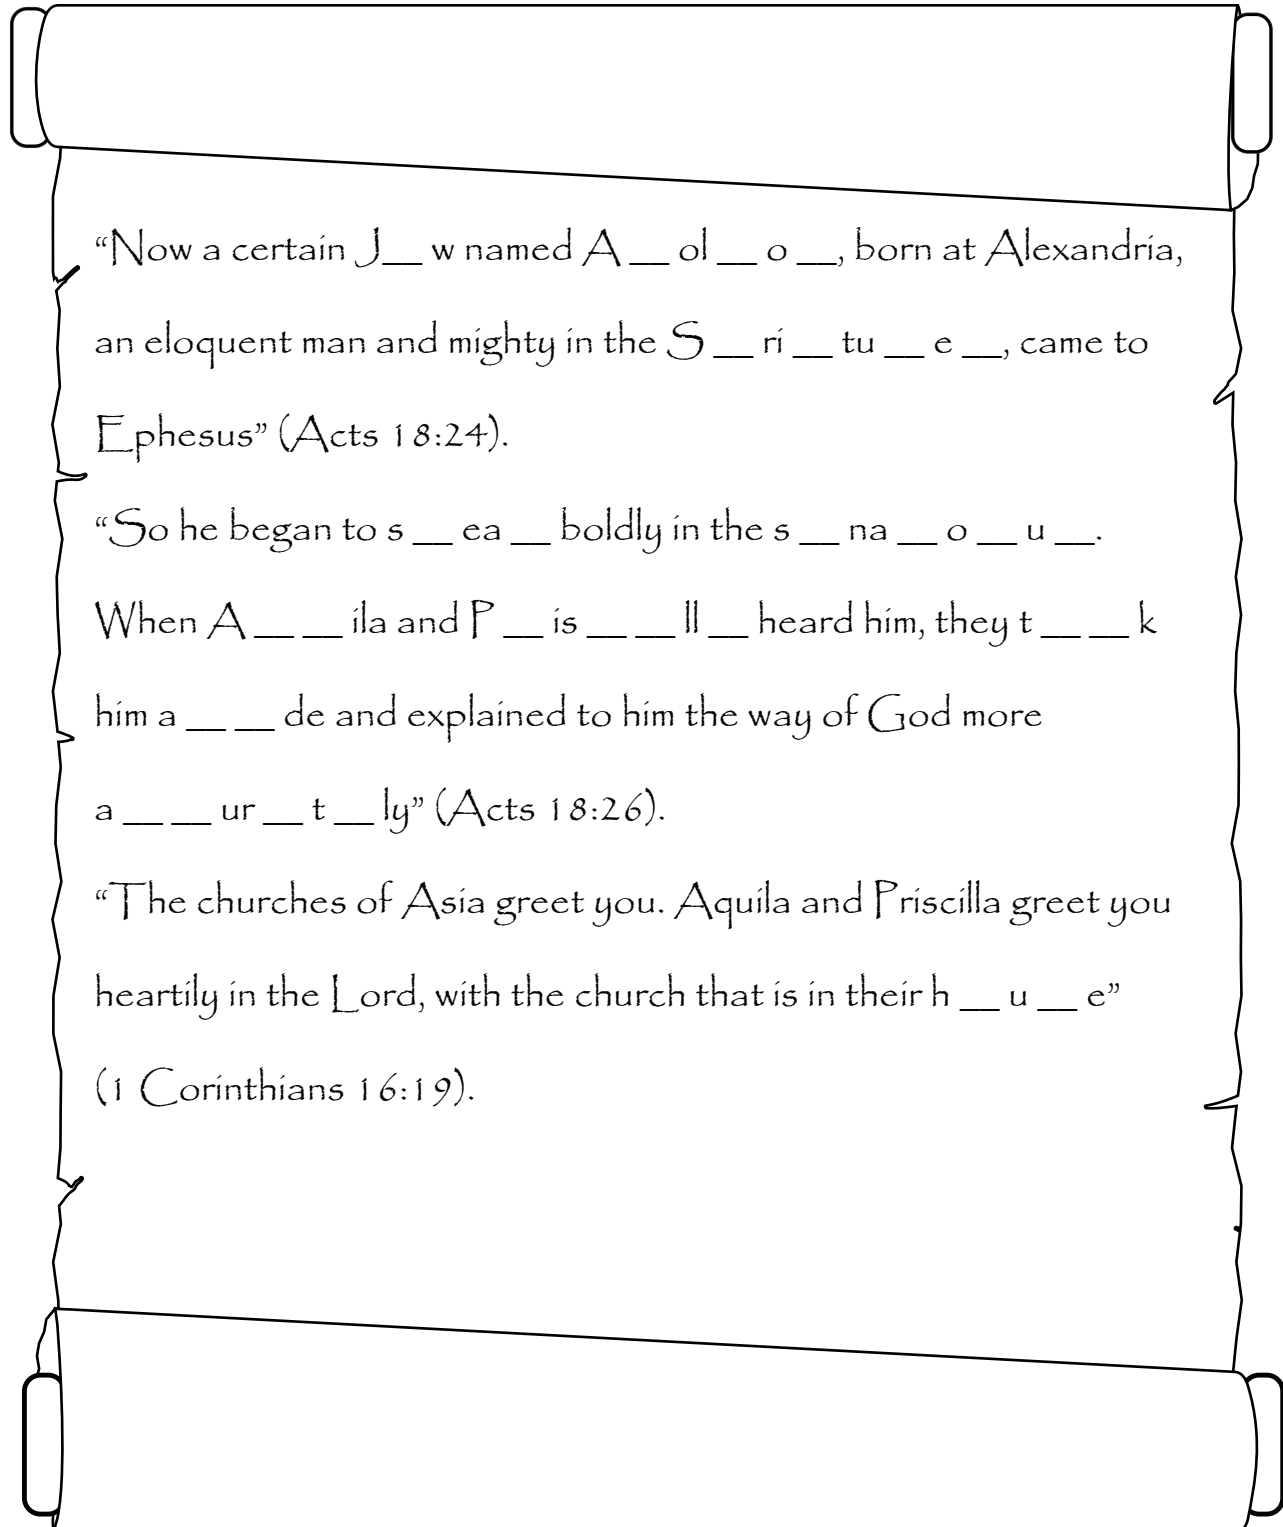 “Now a certain J__ w named A __ ol __ o __, born at Alexandria,
an eloquent man and mighty in the S __ ri __ tu __ e __, came to
Ephesus” (Acts 18:24).
“So he began to s __ ea __ boldly in the s __ na __ o __ u __.
When A __ __ ila and P __ is __ __ ll __ heard him, they t __ __ k
him a __ __ de and explained to him the way of God more
a __ __ ur __ t __ ly” (Acts 18:26).
“The churches of Asia greet you. Aquila and Priscilla greet you
heartily in the Lord, with the church that is in their h __ u __ e”
(1 Corinthians 16:19).